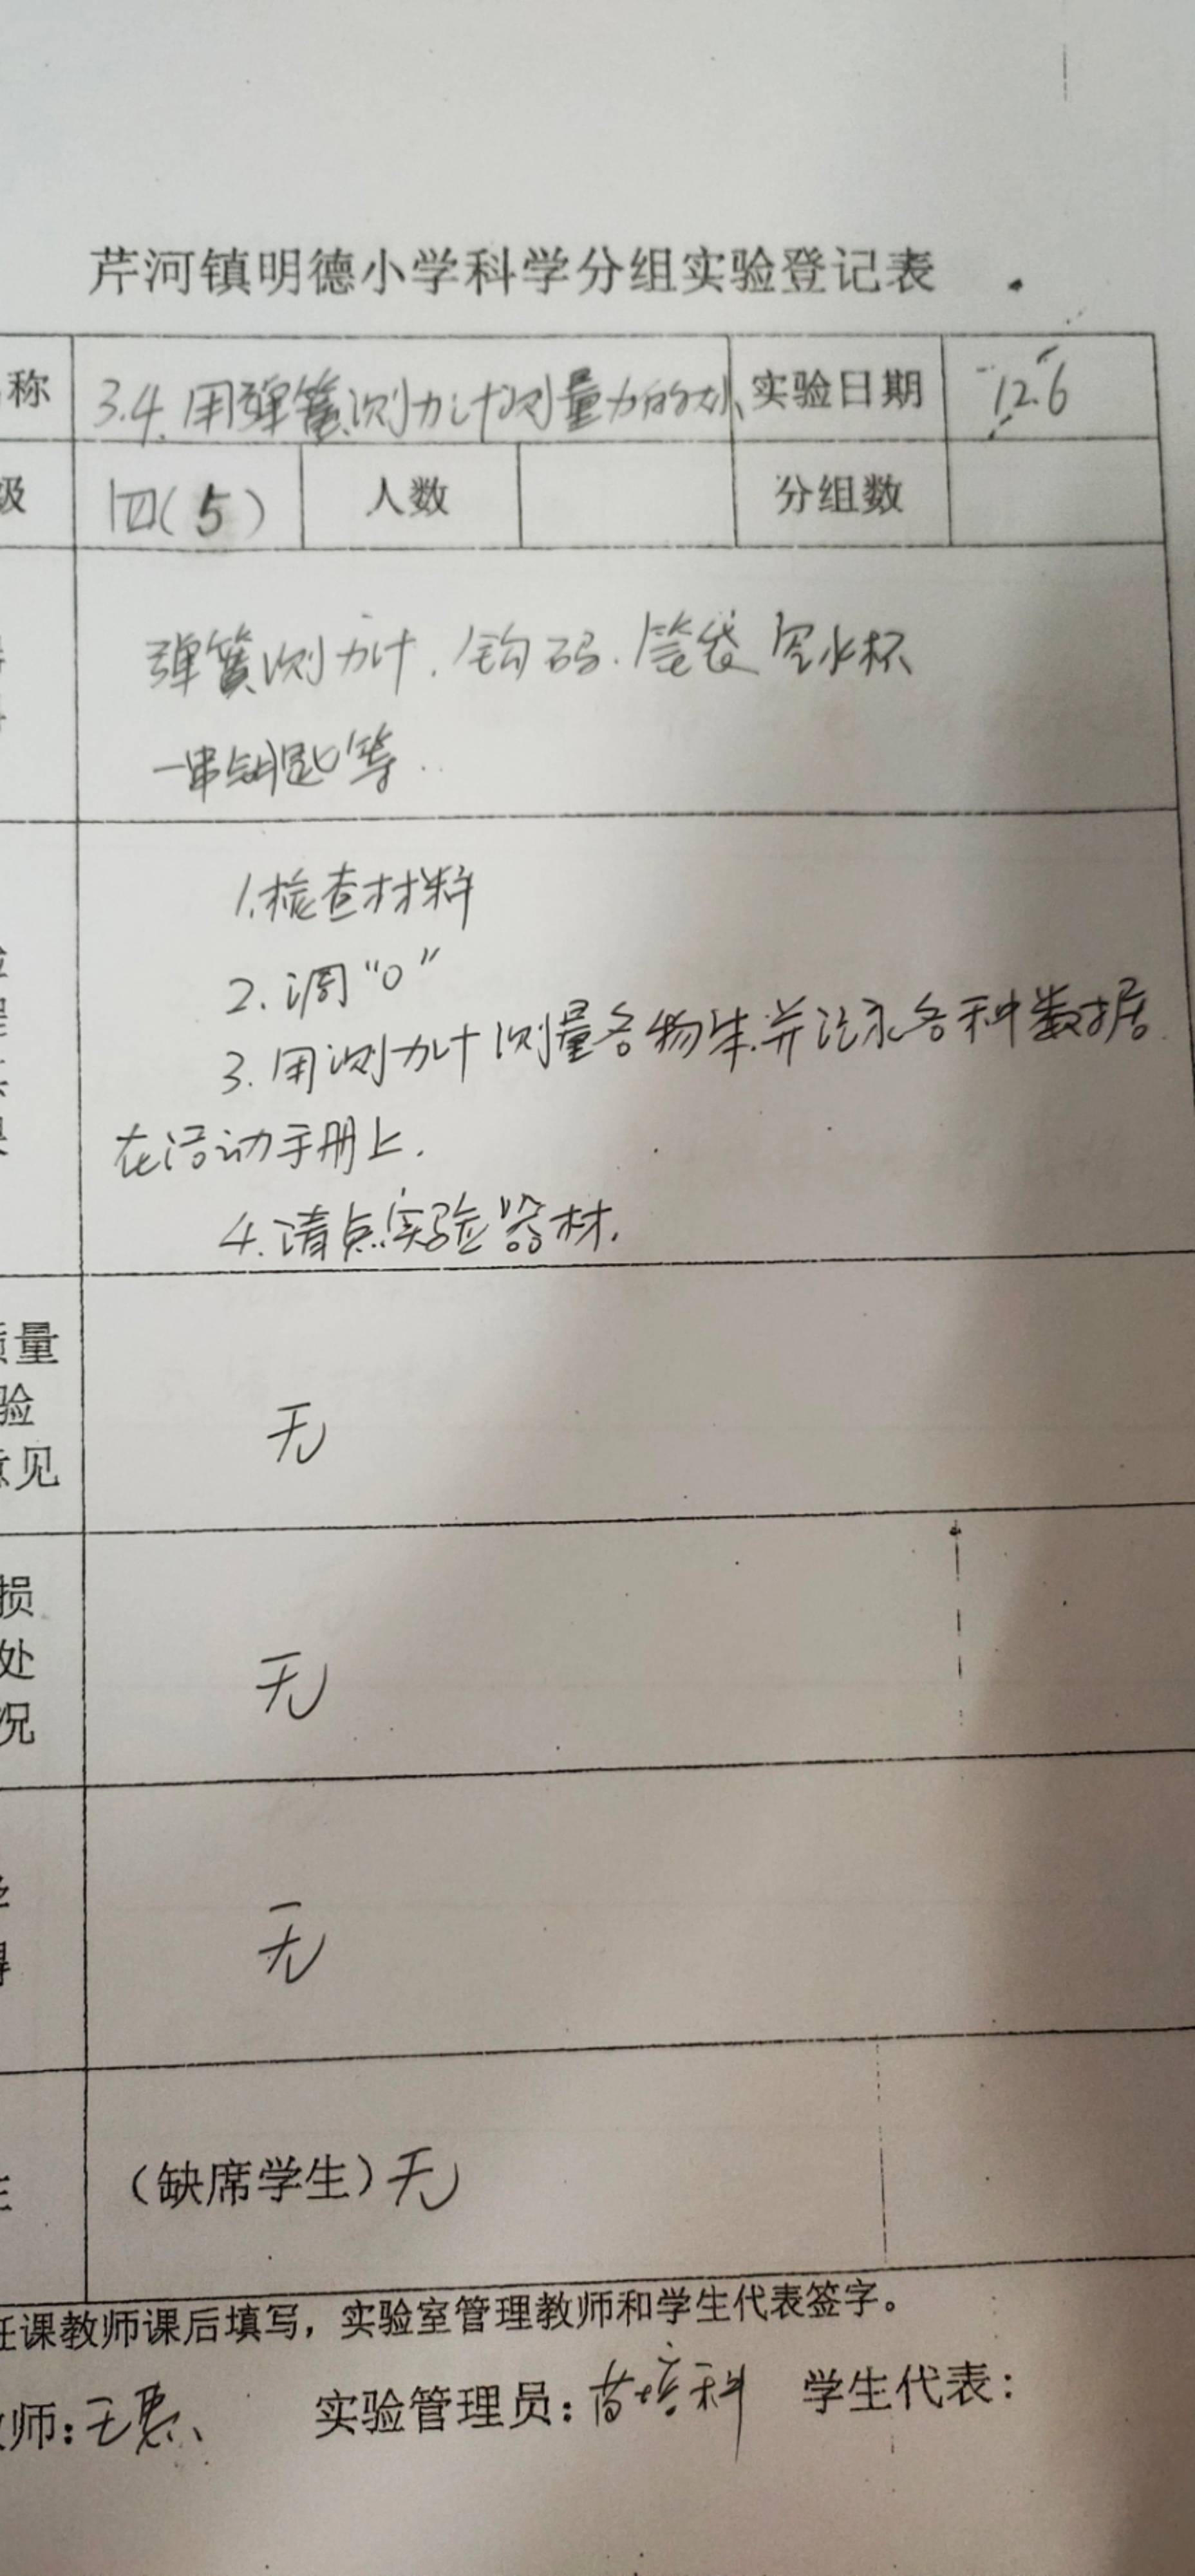 芹河镇明德小学科学分组实验登记表
称 3.4.用弹簧测力计测量力的大小 实验日期 12.6
级 四(5) 人数 分组数
弹簧测力计.钩码.笔袋 空水杯
一串钥匙等.
1.核查材料
2.调“0”
3.用测力计测量各物体.并记录各种数据
在活动手册上.
4.清点实验器材.
质量
验
意见
无
损
处
况
无
无
(缺席学生)无
任课教师课后填写，实验室管理教师和学生代表签字。
师: 实验管理员: 学生代表: